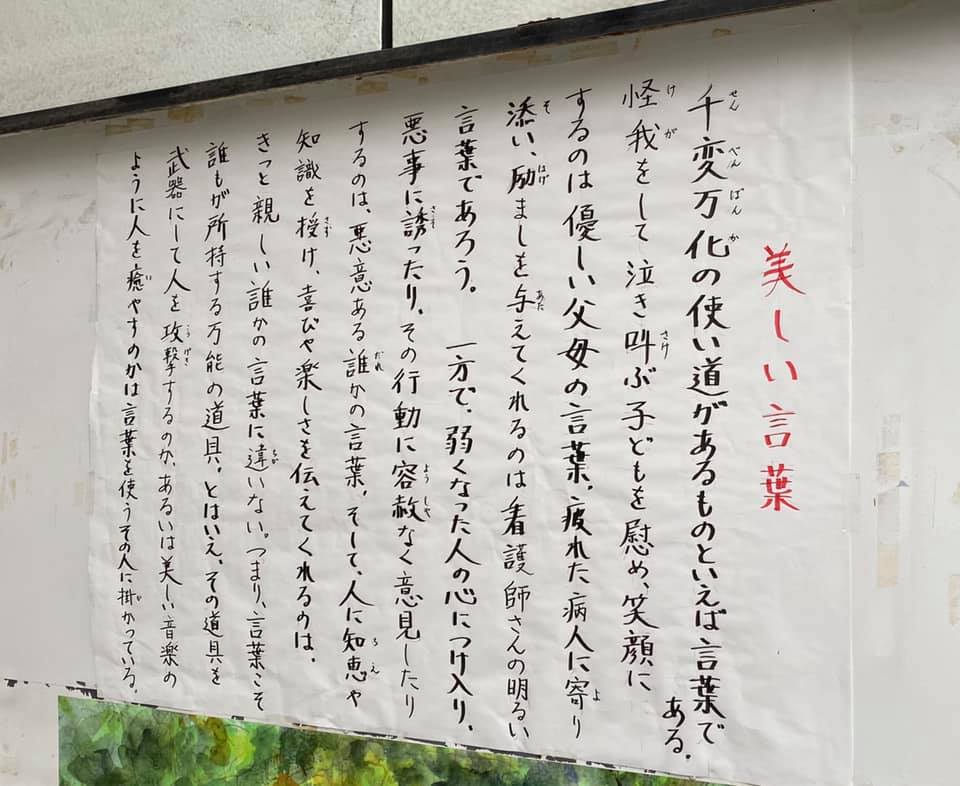 美しい言葉
千変万化の使い道があるものといえば言葉で
ある。
怪我をして泣き叫ぶ子どもを慰め、笑顔に
するのは優しい父母の言葉。疲れた病人に寄り
添い、励ましを与えてくれるのは看護師さんの明るい
言葉であろう。一方で、弱くなった人の心につけ入り、
悪事に誘ったり、その行動に容赦なく意見したり
するのは、悪意ある誰かの言葉。そして、人に知恵や
知識を授け、喜びや楽しさを伝えてくれるのは、
きっと親しい誰かの言葉に違いない。つまり、言葉こそ
誰もが所持する万能の道具。とはいえ、その道具を
武器にして人を攻撃するのか、あるいは美しい音楽の
ように人を癒やすのかは言葉を使うその人に掛かっている。